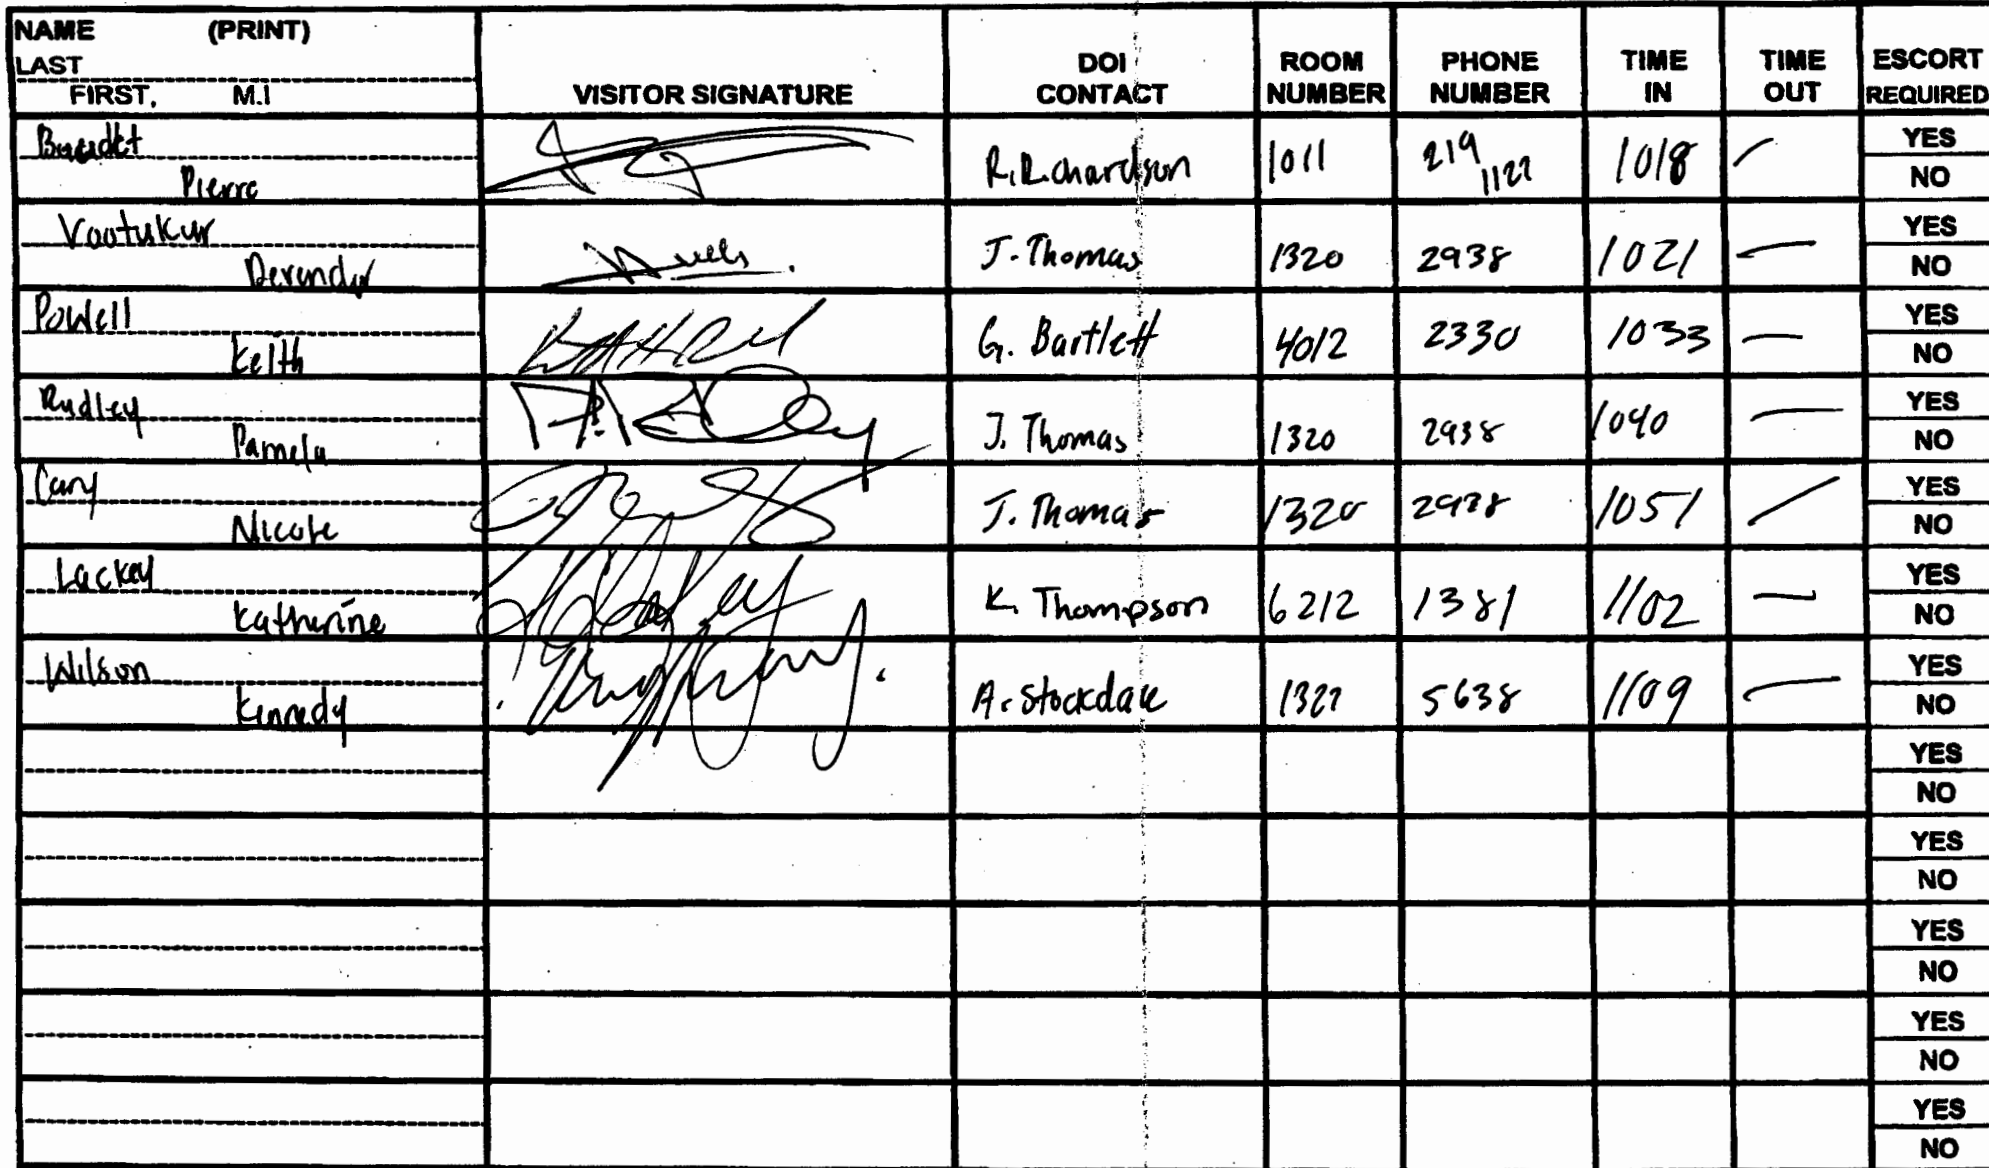 NAME (PRINT)
LAST
FIRST, M.I
VISITOR SIGNATURE
DOI CONTACT
ROOM NUMBER
PHONE NUMBER
TIME IN
TIME OUT
ESCORT REQUIRED
Pierre R. Richardson 1011 219 1122 1018 YES
NO
Vootukur J. Thomas 1320 2938 1021 — YES
NO
Powell
Keith G. Bartlett 4012 2330 1033 — YES
NO
Rudley
Pamela J. Thomas 1320 2938 1040 — YES
NO
Cary
Nicole J. Thomas 1320 2938 1051 YES
NO
Lackey
Katherine K. Thompson 6212 1381 1102 — YES
NO
Wilson
Kennedy A. Stockdale 1327 5638 1109 — YES
NO
YES
NO
YES
NO
YES
NO
YES
NO
YES
NO